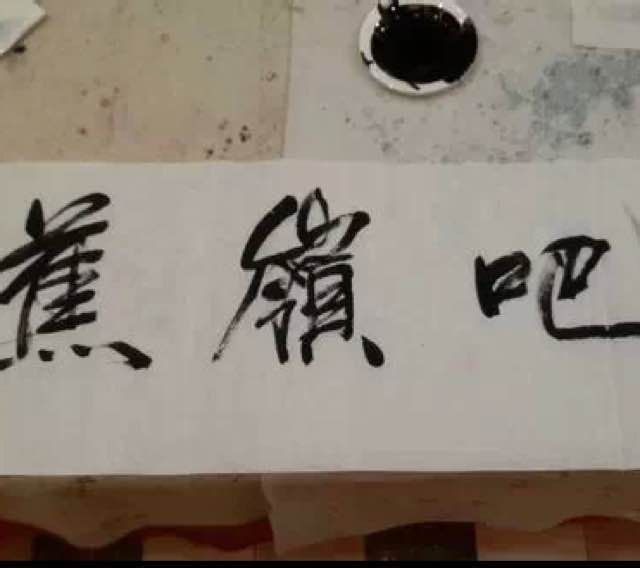 蕉嶺吧